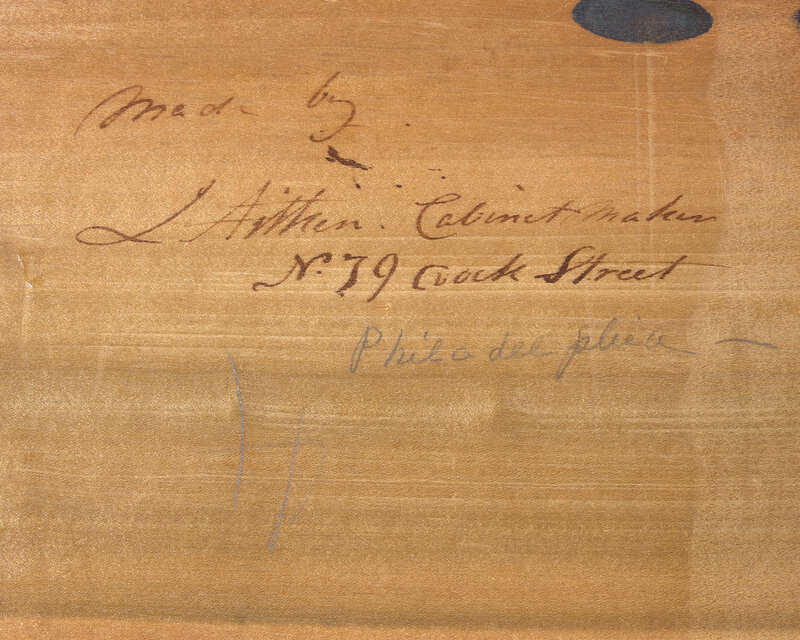 Made by
J Aitken. Cabinet maker
No. 79 Dock Street
Philadelphia —